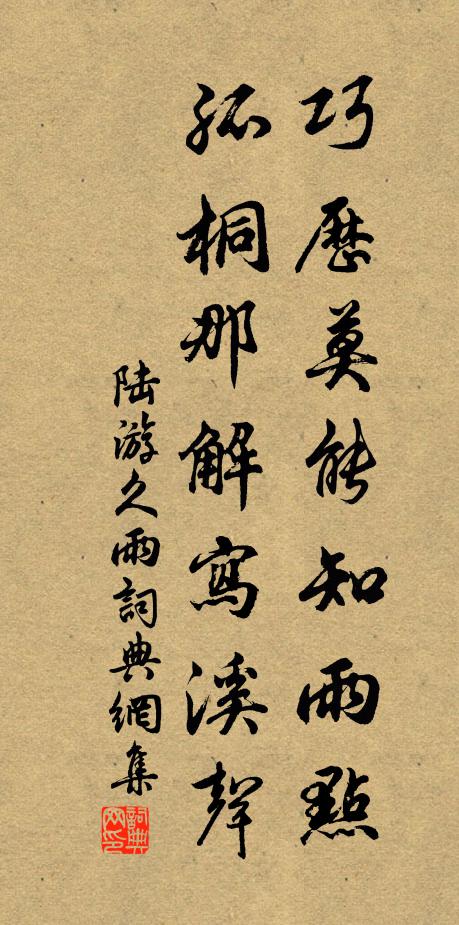 巧歷莫能知雨點
孤桐那解寫溪聲
陸游久雨詞典網集
詞典网印